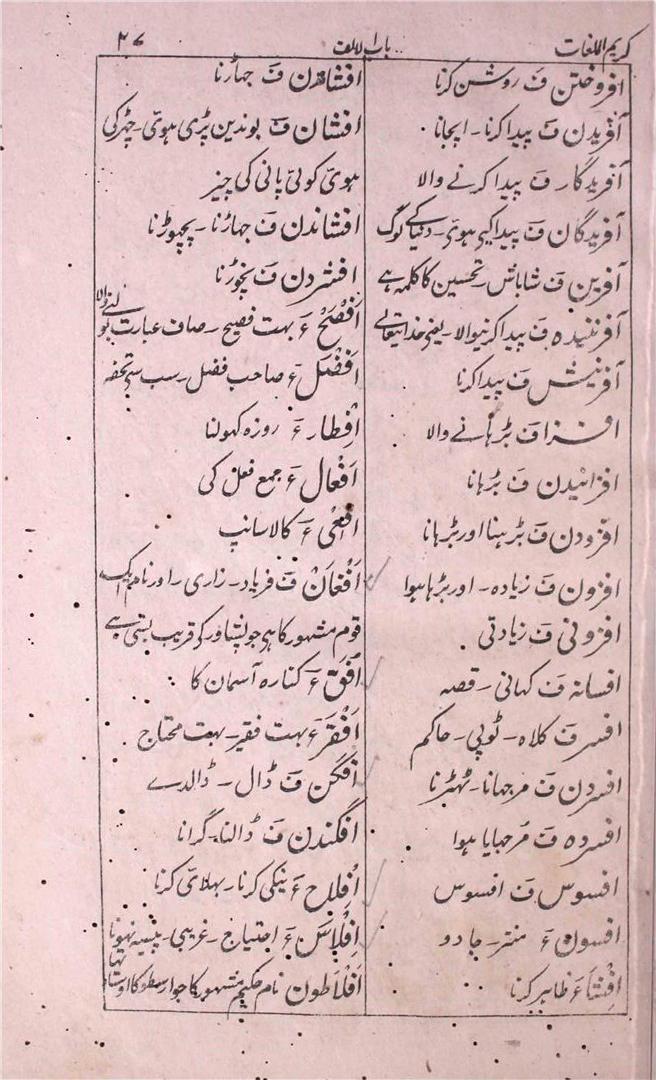 کریم اللغات باب الالف ۲۷
افروختن ف روشن کرنا
آفریدن ف پیدا کرنا۔ اپجانا
آفریدگار ف پیدا کرنے والا
آفریدگان ف پیدا کیی ہوئی۔ دنیا کے لوگ
آفرین ف شاباش۔ تحسین کا کلمہ ہے
آفرینندہ ف پیدا کرنیوالا۔ یعنی خدایتعالے
آفرینش ف پیدا کرنا
افزا ف بڑہانے والا
افزائیدن ف بڑہانا
افزودن ف بڑہنا اور بڑہانا
افزون ف زیادہ۔ اور بڑہا ہوا
افزونی ف زیادتی
افسانہ ف کہانی۔ قصہ
افسر ف کلاہ۔ ٹوپی۔ حاکم
افسردن ف مرجہانا۔ ٹھٹرنا
افسردہ ف مرجہایا ہوا
افسوس ف افسوس
افسون ء منتر۔ جادو
اِفْشَاء ء ظاہر کرنا
افشاندن ف جہاڑنا
افشان ف بوندین پڑی ہوئی۔ چہڑکی
ہوئی کوئی پانی کی چیز
افشاندن ف جہاڑنا۔ پچھوڑنا
افشردن ف نچوڑنا
اَفْصَحْ ء بہت فصیح۔ صاف عبارت بولنے والا
اَفْضَل ء صاحب فضل۔ سب سے تحفہ
اِفطار ء روزہ کہولنا
اَفْعَال ء جمع فعل کی
افْعٰی ء کالا سانپ
اَفْغَانْ ف فریاد۔ زاری۔ اور نام ایک
قوم مشہور کا ہی جو پشاور کی قریب بستی ہے
اُفَقْ ء کنارہ آسمان کا
اَفْقَر ء بہت فقیر۔ بہت محتاج
افگن ف ڈال۔ ڈالدے
افگندن ف ڈالنا۔ گرانا
اِفلاح ء نیکی کرنا۔ بہلائی کرنا
اِفْلَاسْ ء احتیاج۔ غریبی۔ پیسہ نہونا
اَفْلَاطون نام حکیم مشہور کا جو ارسطو کا اوستاد تہا